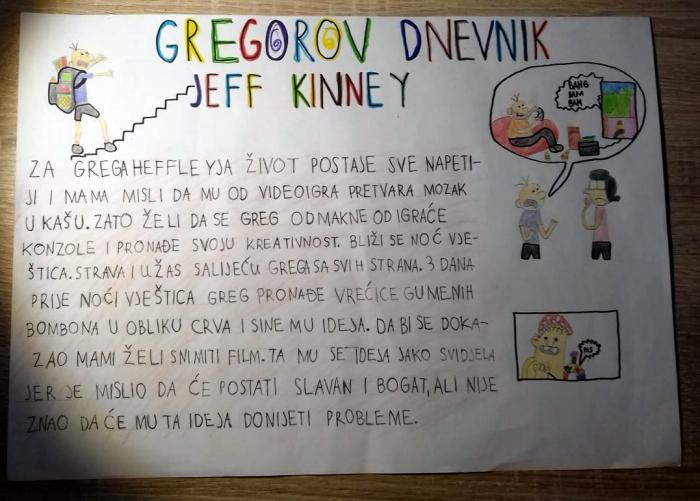 GREGOROV DNEVNIK
JEFF KINNEY
BANG
BAM
BAM
ZA GREGA HEFFLEYJA ŽIVOT POSTAJE SVE NAPETI-
JI I MAMA MISLI DA MU OD VIDEOIGRA PRETVARA MOZAK
U KAŠU. ZATO ŽELI DA SE GREG ODMAKNE OD IGRAĆE
KONZOLE I PRONAĐE SVOJU KREATIVNOST. BLIŽI SE NOĆ VJE-
ŠTICA. STRAVA I UŽAS SALIJEĆU GREGA SA SVIH STRANA. 3 DANA
PRIJE NOĆI VJEŠTICA GREG PRONAĐE VREĆICE GUMENIH
BOMBONA U OBLIKU CRVA I SINE MU IDEJA. DA BI SE DOKA-
ZAO MAMI ŽELI SNIMITI FILM. TA MU SE IDEJA JAKO SVIDJELA
JER JE MISLIO DA ĆE POSTATI SLAVAN I BOGAT, ALI NIJE
ZNAO DA ĆE MU TA IDEJA DONIJETI PROBLEME.